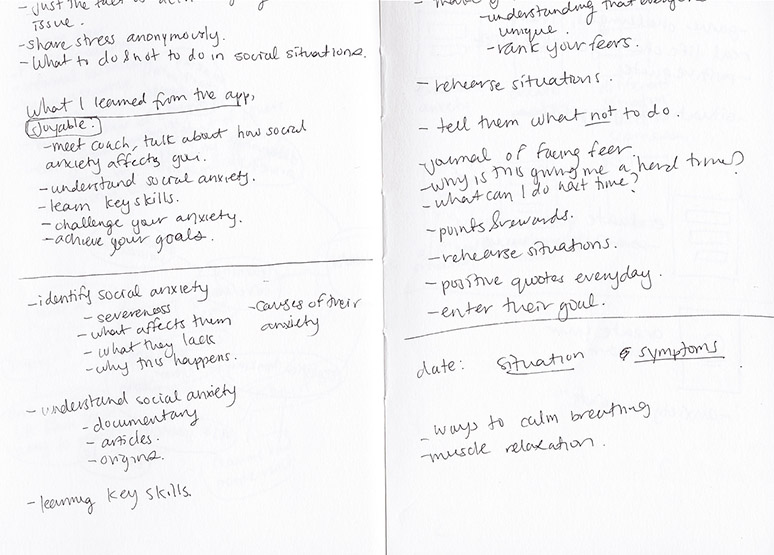 - just the fact
issue.
- share stress anonymously.
- What to do & not to do in social situations.
What I learned from the app,
Joyable.
- meet coach, talk about how social
anxiety affects you.
- understand social anxiety.
- learn key skills.
- challenge your anxiety.
- achieve your goals.
- identify social anxiety
- severeness
- what affects them
- what they lack
- why this happens.
- causes of their
anxiety
- understand social anxiety
- documentary
- articles.
- origins.
- learning key skills.
- understanding that everyone
unique.
- rank your feers.
- rehearse situations.
- tell them what not to do.
- journal of facing feer
- why is this giving me a hard time?
- what can I do next time?
- points & rewards.
- rehearse situations.
- positive quotes everyday.
- enter their goal.
date: situation & symptoms
- ways to calm breathing
- muscle relaxation.